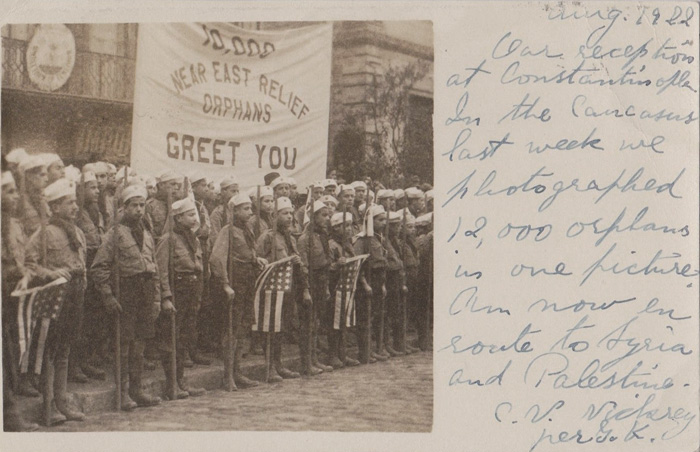 10,000
NEAR EAST RELIEF
ORPHANS
GREET YOU
Aug. 1922
Our reception
at Constantinople
In the Caucasus
last week we
photographed
12,000 orphans
in one picture
Am now en
route to Syria
and Palestine.
C. V. Vickrey
per G. K.